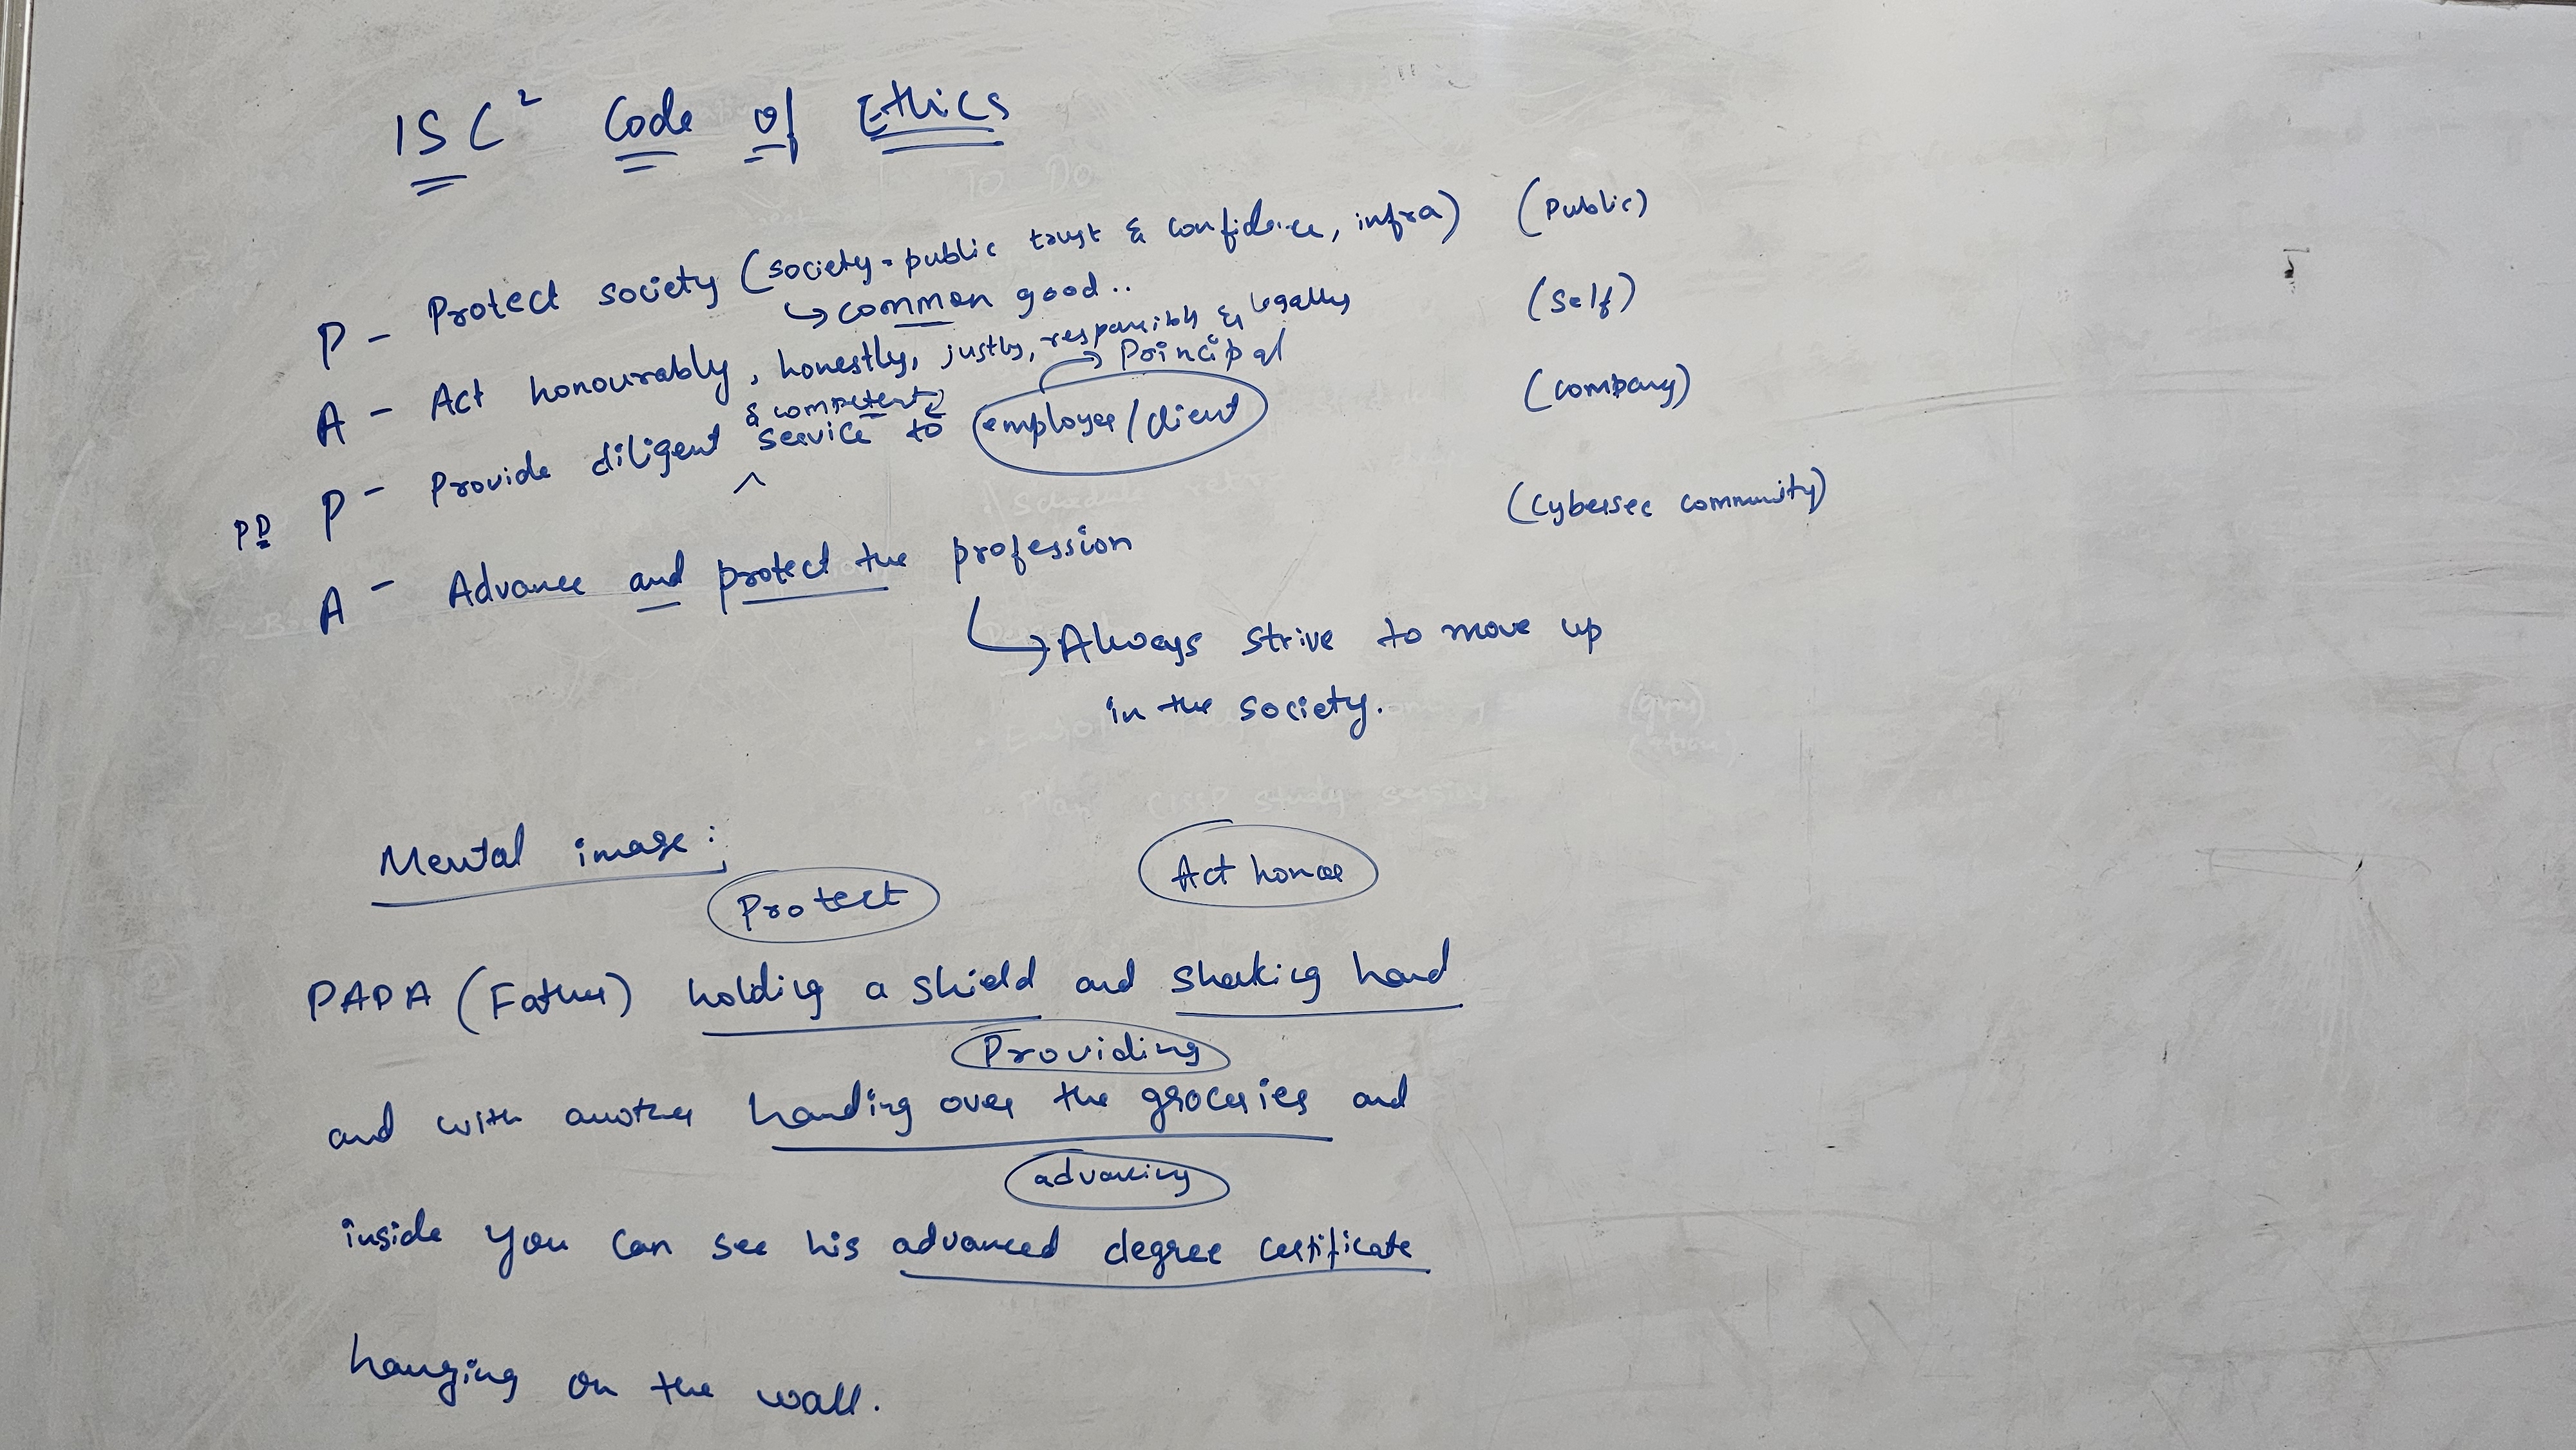 ISC² Code of Ethics
P - Protect society (society - public trust & confidence, infra) (Public)
↳ common good..
A - Act honourably, honestly, justly, responsibly & legally (Self)
→ Principal
& competent
P - Provide diligent service to employer/client (company)
PD
A - Advance and protect the profession (Cybersec community)
↳ Always strive to move up
in the society.
Mental image:
Protect Act honor
PAPA (Father) holding a shield and shaking hand
Providing
and with another handing over the groceries and
advancing
inside you can see his advanced degree certificate
hanging on the wall.
To Do
Plan CISSP study session
(gym)